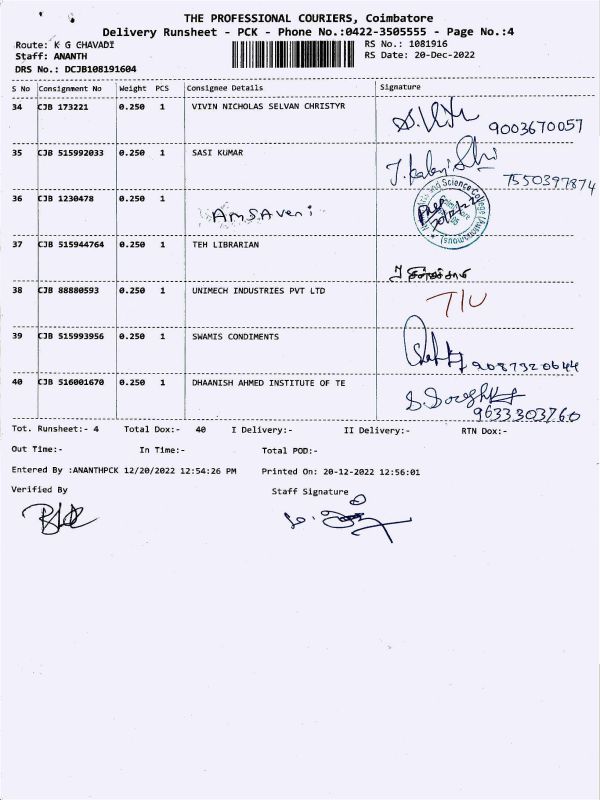 THE PROFESSIONAL COURIERS, Coimbatore
Delivery Runsheet - PCK - Phone No.:0422-3505555 - Page No.:4
Route: K G CHAVADI RS No.: 1081916
Staff: ANANTH RS Date: 20-Dec-2022
DRS No.: DCJB108191604
S No Consignment No Weight PCS Consignee Details Signature
34 CJB 173221 0.250 1 VIVIN NICHOLAS SELVAN CHRISTYR
9003670057
35 CJB 515992033 0.250 1 SASI KUMAR
7550397874
36 CJB 1230478 0.250 1 AMSAVeni
Science College (Autonomous)
37 CJB 515944764 0.250 1 TEH LIBRARIAN
38 CJB 88880593 0.250 1 UNIMECH INDUSTRIES PVT LTD
39 CJB 515993956 0.250 1 SWAMIS CONDIMENTS
9087320644
40 CJB 516001670 0.250 1 DHAANISH AHMED INSTITUTE OF TE
9633303760
Tot. Runsheet:- 4 Total Dox:- 40 I Delivery:- II Delivery:- RTN Dox:-
Out Time:- In Time:- Total POD:-
Entered By :ANANTHPCK 12/20/2022 12:54:26 PM Printed On: 20-12-2022 12:56:01
Verified By Staff Signature